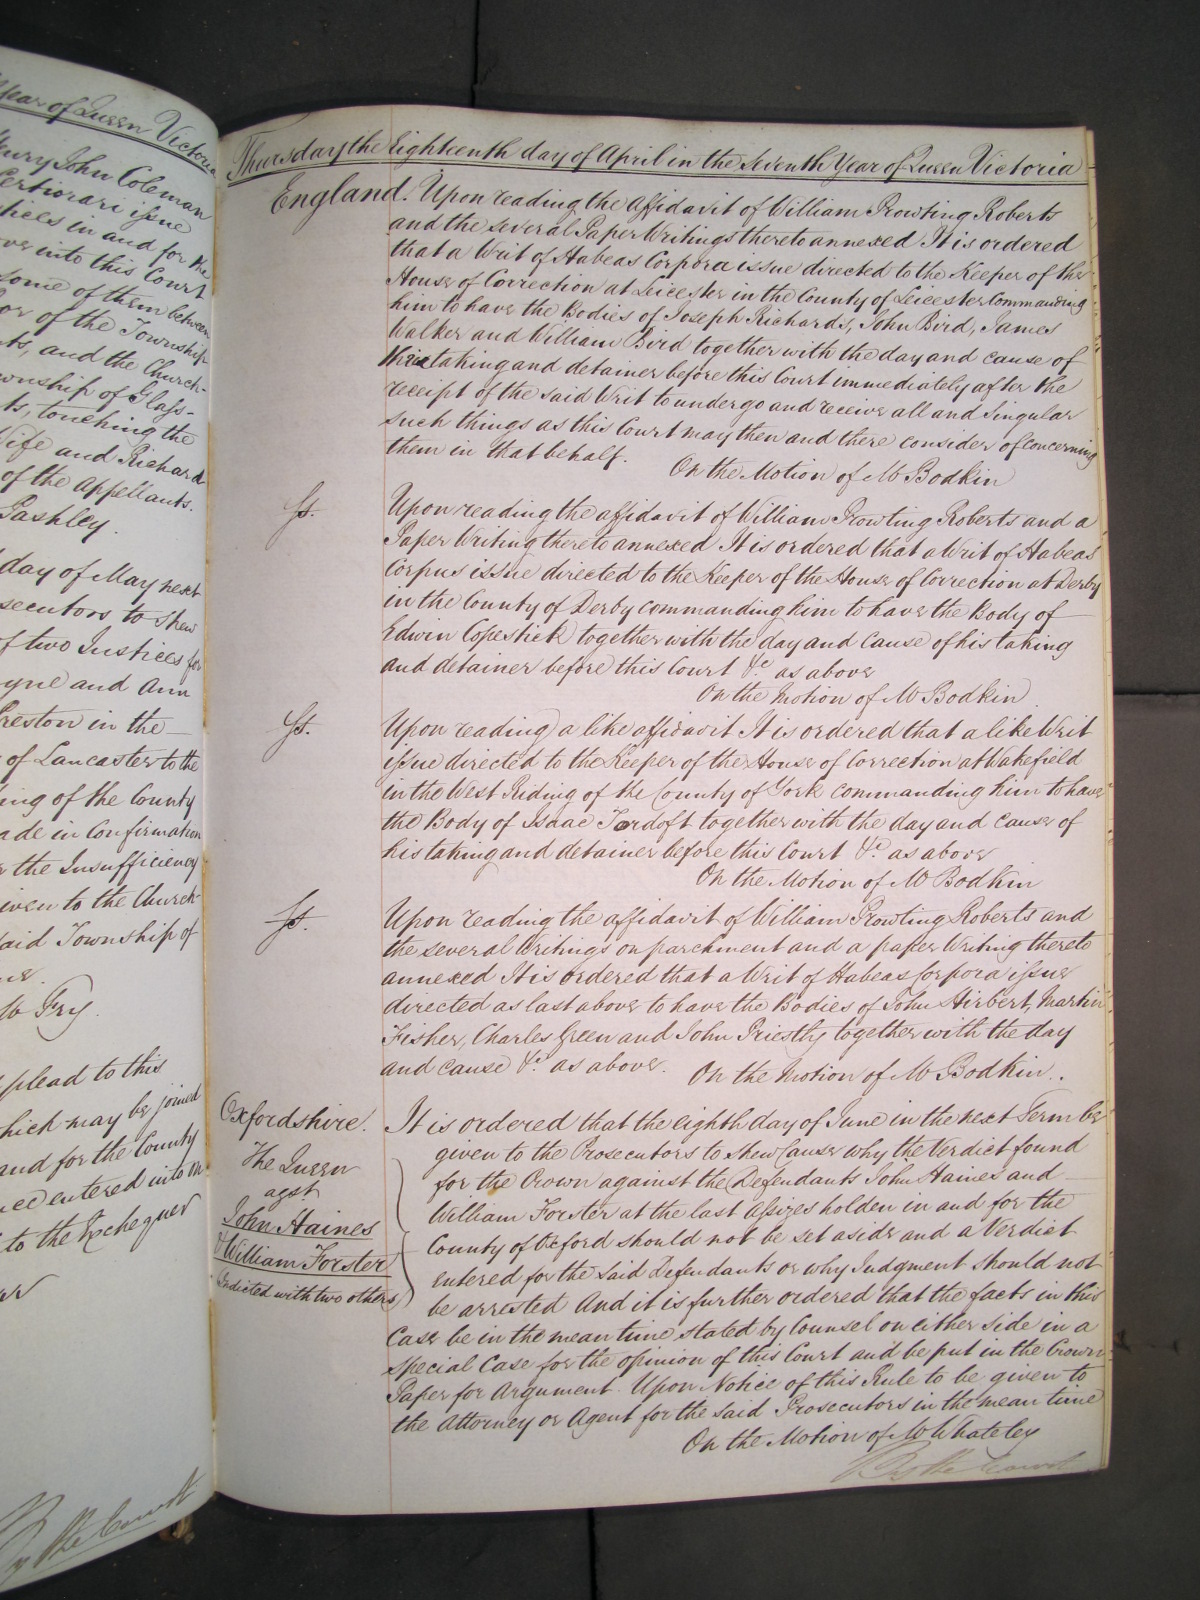 Year of Queen Victoria
Henry John Coleman
Certiorari issue
Justices in and for the
into this Court
some of them between
of the Township
and the Church-
Township of Glass-
touching the
Wife and Richard
of the Appellants.
Pashley.
day of May next
Prosecutors to shew
of two Justices for
and Ann
Preston in the
of Lancaster to the
of the County
made in Confirmation
the Insufficiency
given to the Church-
said Township of
Mr Fry.
plead to this
which may be joined
and for the County
entered into in
to the Exchequer
By the Court
Thursday the Eighteenth day of April in the seventh Year of Queen Victoria
England. Upon reading the affidavit of William Prowting Roberts
and the several Paper Writings thereto annexed It is ordered
that a Writ of Habeas Corpora issue directed to the Keeper of the
House of Correction at Leicester in the County of Leicester Commanding
him to have the Bodies of Joseph Richards, John Bird, James
Walker and William Bird together with the day and cause of
their taking and detainer before this Court immediately after the
receipt of the said Writ to undergo and receive all and Singular
such things as this Court may then and there consider of concerning
them in that behalf. On the Motion of Mr Bodkin
Upon reading the affidavit of William Prowting Roberts and a
Paper Writing thereto annexed It is ordered that a Writ of Habeas
Corpus issue directed to the Keeper of the House of Correction at Derby
in the County of Derby commanding him to have the Body of
Edwin Copestick together with the day and cause of his taking
and detainer before this Court &c. as above
On the Motion of Mr Bodkin
Upon reading a like affidavit It is ordered that a like Writ
issue directed to the Keeper of the House of Correction at Wakefield
in the West Riding of the County of York commanding him to have
the Body of Isaac Tordoft together with the day and cause of
his taking and detainer before this Court &c. as above
On the Motion of Mr Bodkin
Upon reading the affidavit of William Prowting Roberts and
the several Writings on parchment and a paper Writing thereto
annexed It is ordered that a Writ of Habeas Corpora issue
directed as last above to have the Bodies of John Hirbert, Martin
Fisher, Charles Green and John Priestly together with the day
and cause &c. as above. On the Motion of Mr Bodkin.
Oxfordshire.
The Queen
agst
John Haines
& William Forster
(Indicted with two others)
It is ordered that the eighth day of June in the next Term be
given to the Prosecutors to shew Cause why the Verdict found
for the Crown against the Defendants John Haines and
William Forster at the last Assizes holden in and for the
County of Oxford should not be set aside and a Verdict
entered for the said Defendants or why Judgment should not
be arrested And it is further ordered that the facts in this
Case be in the mean time stated by Counsel on either side in a
special Case for the opinion of this Court and be put in the Crown
Paper for Argument Upon Notice of this Rule to be given to
the Attorney or Agent for the said Prosecutors in the mean time
On the Motion of Mr Whateley
By the Court